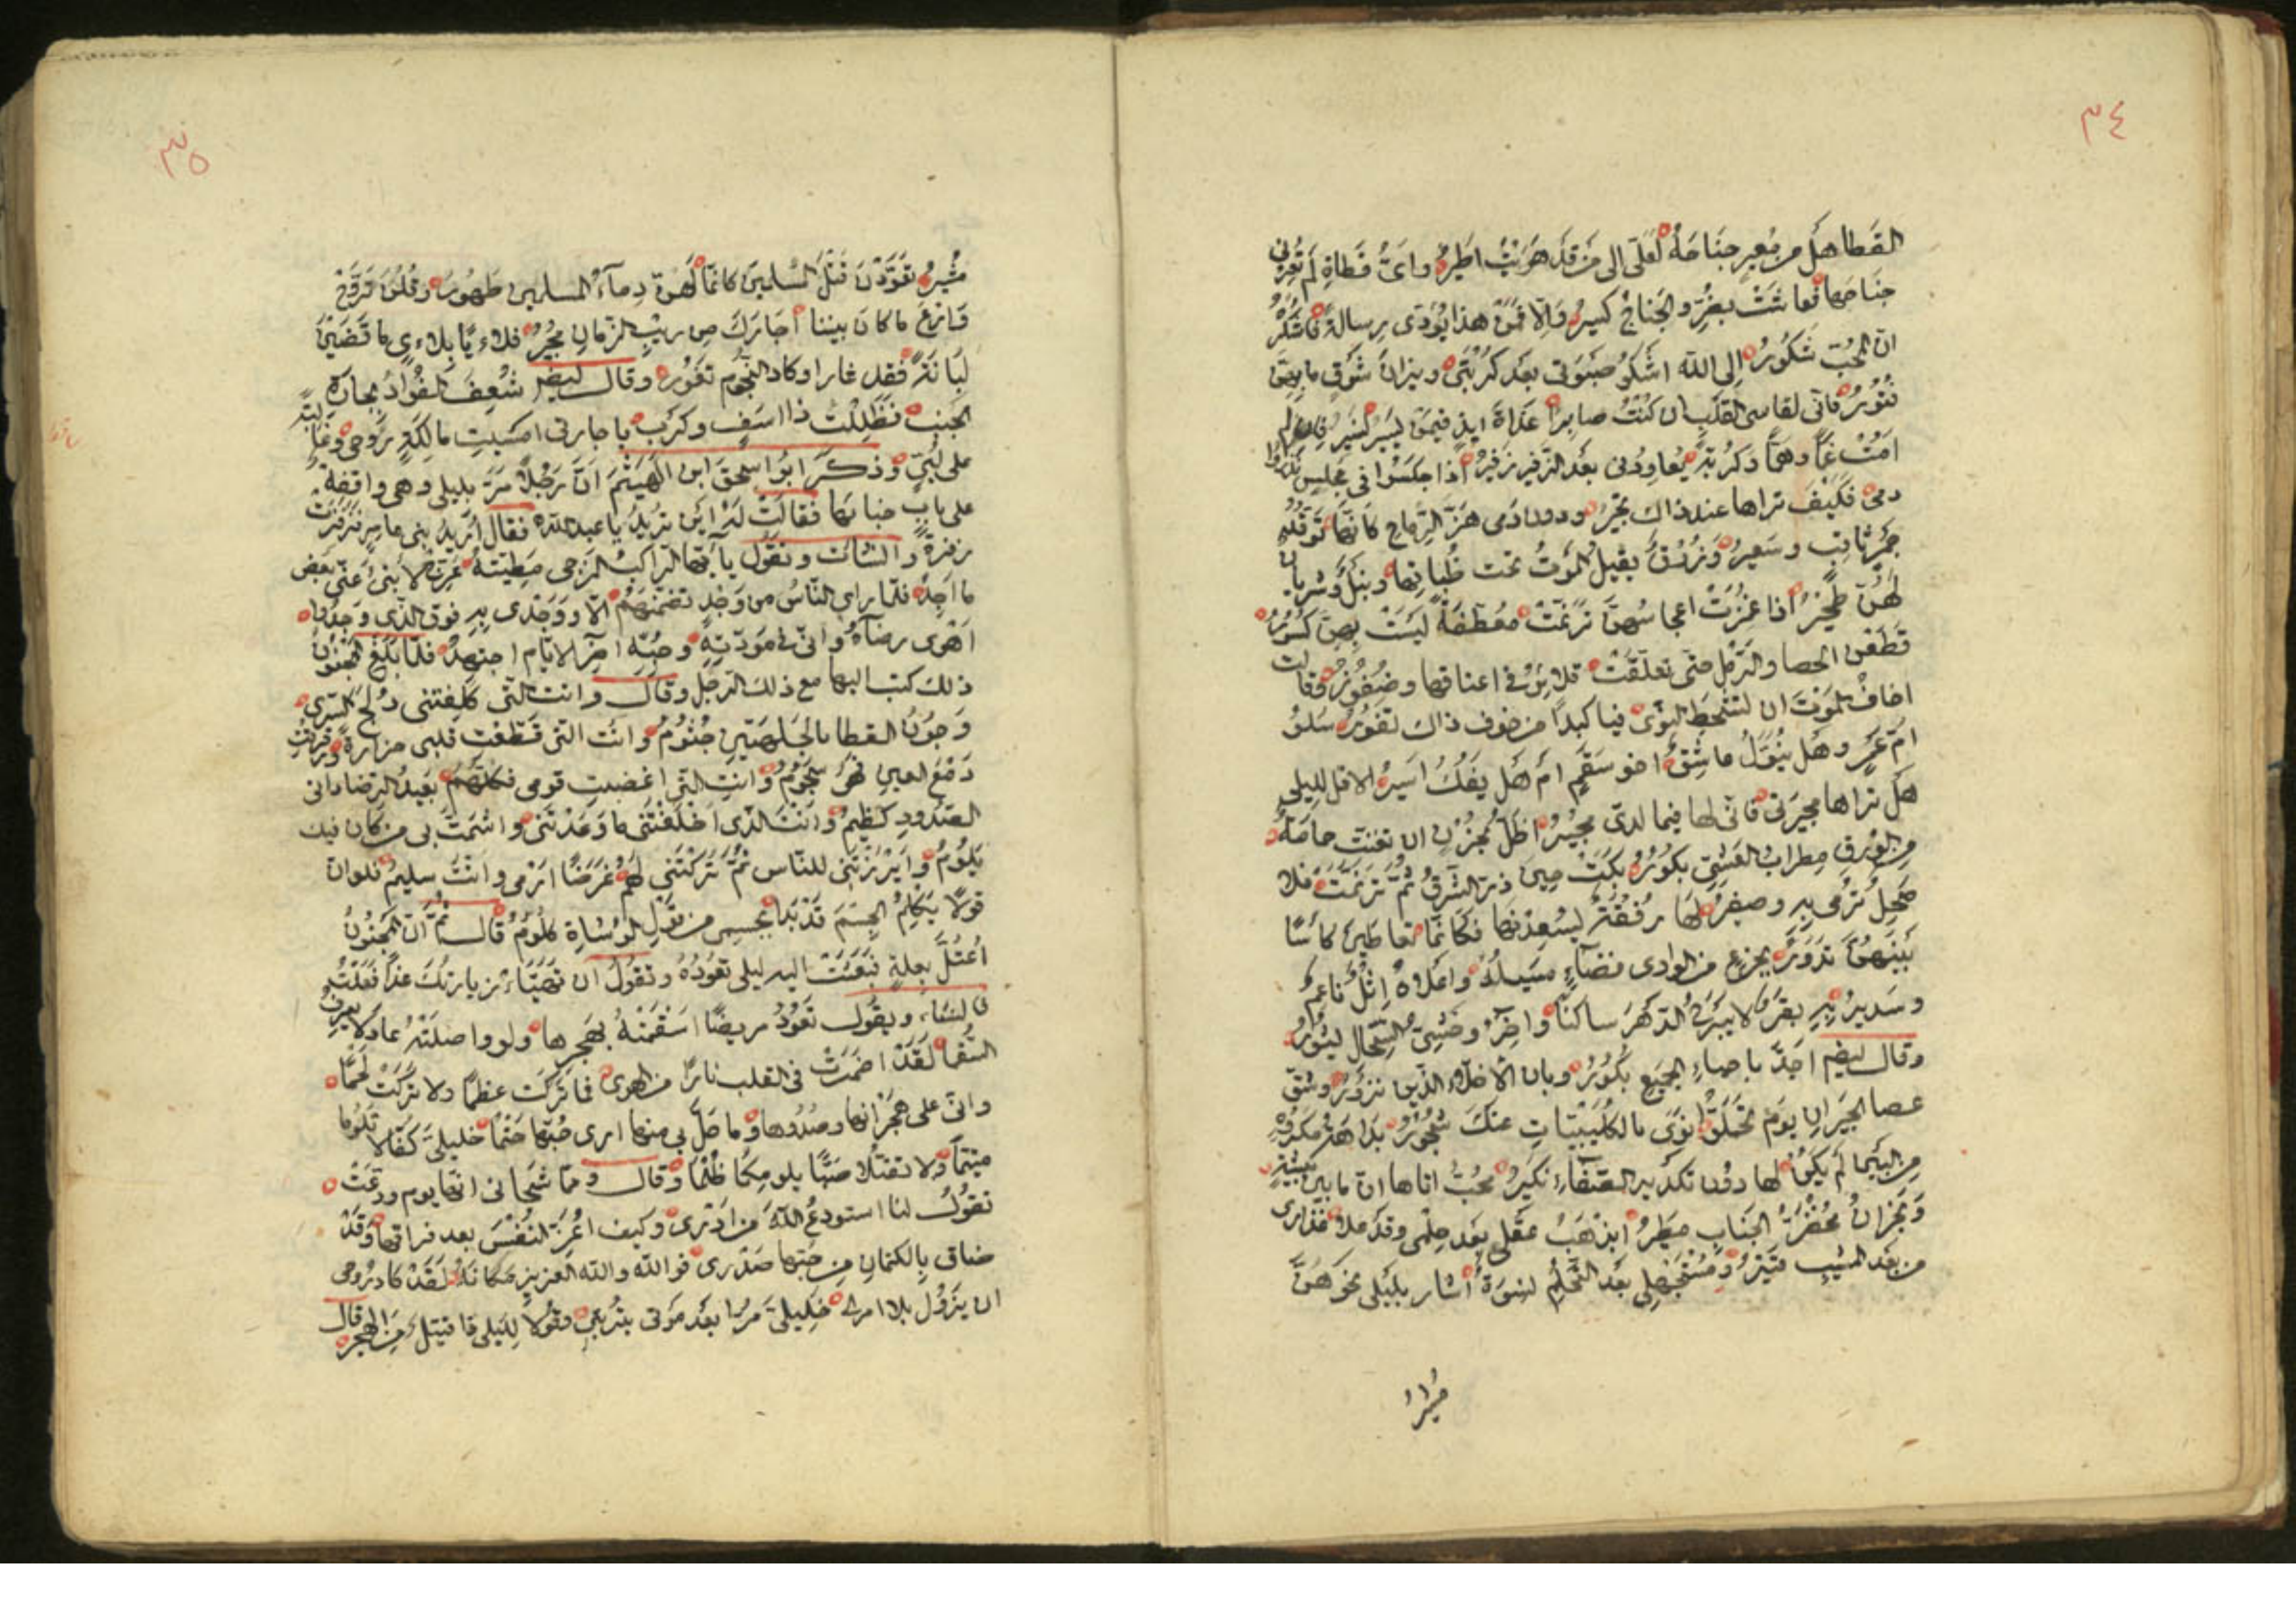 ٣٤
القطا هل من معير جناحه لعلى الى من قد هويت اطير واى قطاة لم تعرنى
جناحها فعاشت بضر والجناح كسير والا فمن هذا يؤدى رسالة فاشكر
ان المحب شكور الى الله اشكو صبوتى بعد كربتى ونيران شوقى ما بهن
فتور فانى لقاسى القلب ان كنت صابرا غداة غد فيمن يسير فان لم
امت غما وهما وكربة يعاودنى بعد الزفير زفير اذا جلسوا فى مجلس نذروا
دمى فكيف تراها عند ذاك تجير ودون دمى هز الرماح كانها توقد
جمر ثاقب وسعير وزرق بقيل الموت تحت ظباتها ونبل وشريان
لهن طحير اذا غمزت اعجاسهن ترنمت معطفة ليست بهن كسور
قطعن الحصا والرمل حتى تعلقت قلائد فى اعناقها وضفور وقالت
اخاف الموت ان تشحط النوى فيا كبدا من خوف ذاك تفور سلو
ام عمرو هل ينول عاشق اخو سقم ام هل يفك اسير الا قل لليلى
هل تراها مجيرتى فانى لها فيما لدى مجير اظل بحزن ان تغنت حمامة
من الورق مطراب العشى بكور بكت حين ذر الشرق ثم ترنمت فلا
صحل ترمى به وصفير لها رفقة يسعدنها فكانما تعاطين كاسا
بينهن تدور بجزع من الوادى فضاء مسيله واعلاه اثل ناعم
وسدير به بقر لا يبرح الدهر ساكنا واخر وحشى السخال ينور
وقال ايضا اجد با حياء الجميع بكور وبان الاخلاء الذين تزور وشق
عصا الجيران يوم تحملوا نوى بالكثيبات عنك شجور بدا هذ مكروه
من البين لم يكن لها دون تكدير الصفاء نكير محب اتاها ان ما بين بيشة
ونجران مخضر الجناب مطير ايذهب عقلى بعد حلمى وقد علا عذارى
من بعد المشيب قتير ومستجهل بعد التحلم نسوة اشار بليلى نحوهن
مشير
٣٥
مشير تعودن قتل المسلمين كانما لهن دماء المسلمين طهور وقلن تروح
فازمع ما كان بيننا اجارك من ريب الزمان مجير فلاء يا بلاءى ما قضين
لبانة فقل غارا وكاد النجوم تغور وقال ايضا شعف الفؤاد بجارة
الجنب فظللت ذا اسف وكرب يا جارتى امسيت مالكة روحى وغالبة
على لبى وذكر ابو اسحق ابن الهيثم ان رجلا مر بليلى وهى واقفة
على باب خبائها فقالت له اين تريد يا عبد الله فقال اريد بنى عامر فزفرت
زفرة وانشات وتقول يا ايها الراكب المزجى مطيته عرج لابنئ عنى بعض
ما اجد فلما راى الناس من وجد تضمنهم الا ووجدى به فوق الذى وجدوا
اهوى رضاه وانى فى مودته وحبه اخر الايام اجتهد فلما بلغ المجنون
ذلك كتب اليها مع ذلك الرجل وقال وانت التى كلفتنى دلج السرى
وجون القطا بالجلهتين جثوم وانت التى قطعت قلبى حزازة ورقرقت
دمع العين فهى سجوم وانت التى اغضبت قومى فكلهم بعيد الرضا دانى
الصدود كظيم وانت الذى اخلفتنى ما وعدتنى واشمت بى من كان فيك
يلوم وابرزتنى للناس ثم تركتنى لهم غرضا ارمى وانت سليم فلو ان
قولا يكلم الجسم قد بدا بجسمى من قول الوشاة كلوم قال ثم ان المجنون
اعتل بعلة فبعثت اليه ليلى تعوده وتقول ان تهيا زيارتك غدا فعلت
فانشا ويقول تعود مريضا اسقمته بهجرها ولو واصلته عاد لا يعرف
السقما لقد اضمرت فى القلب نارا من الهوى فما تركت عظما ولا تركت لحما
وانى على هجرانها وصدودها وما حل بى منها ارى حبها حتما خليلى كفا لا تلوما
متيما ولا تقتلا صبا بلومكما ظلما وقال ومما شجانى انها يوم ودعت
تقول لنا استودع الله من ادرى وكيف اعز النفس بعد فراقها وقد
ضاق بالكتمان من حبها صدرى فوالله والله العزيز مكانه لقد كاد روحى
ان يزول بلا امرى خليلى مرا بعد موتى بتربتى وقولا لليلى ذا قتيل من الهجر قال